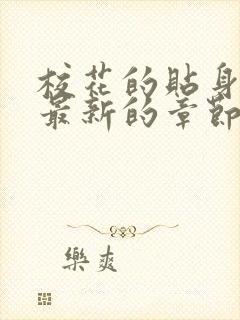 校花的貼身
最新的章節
樂爽